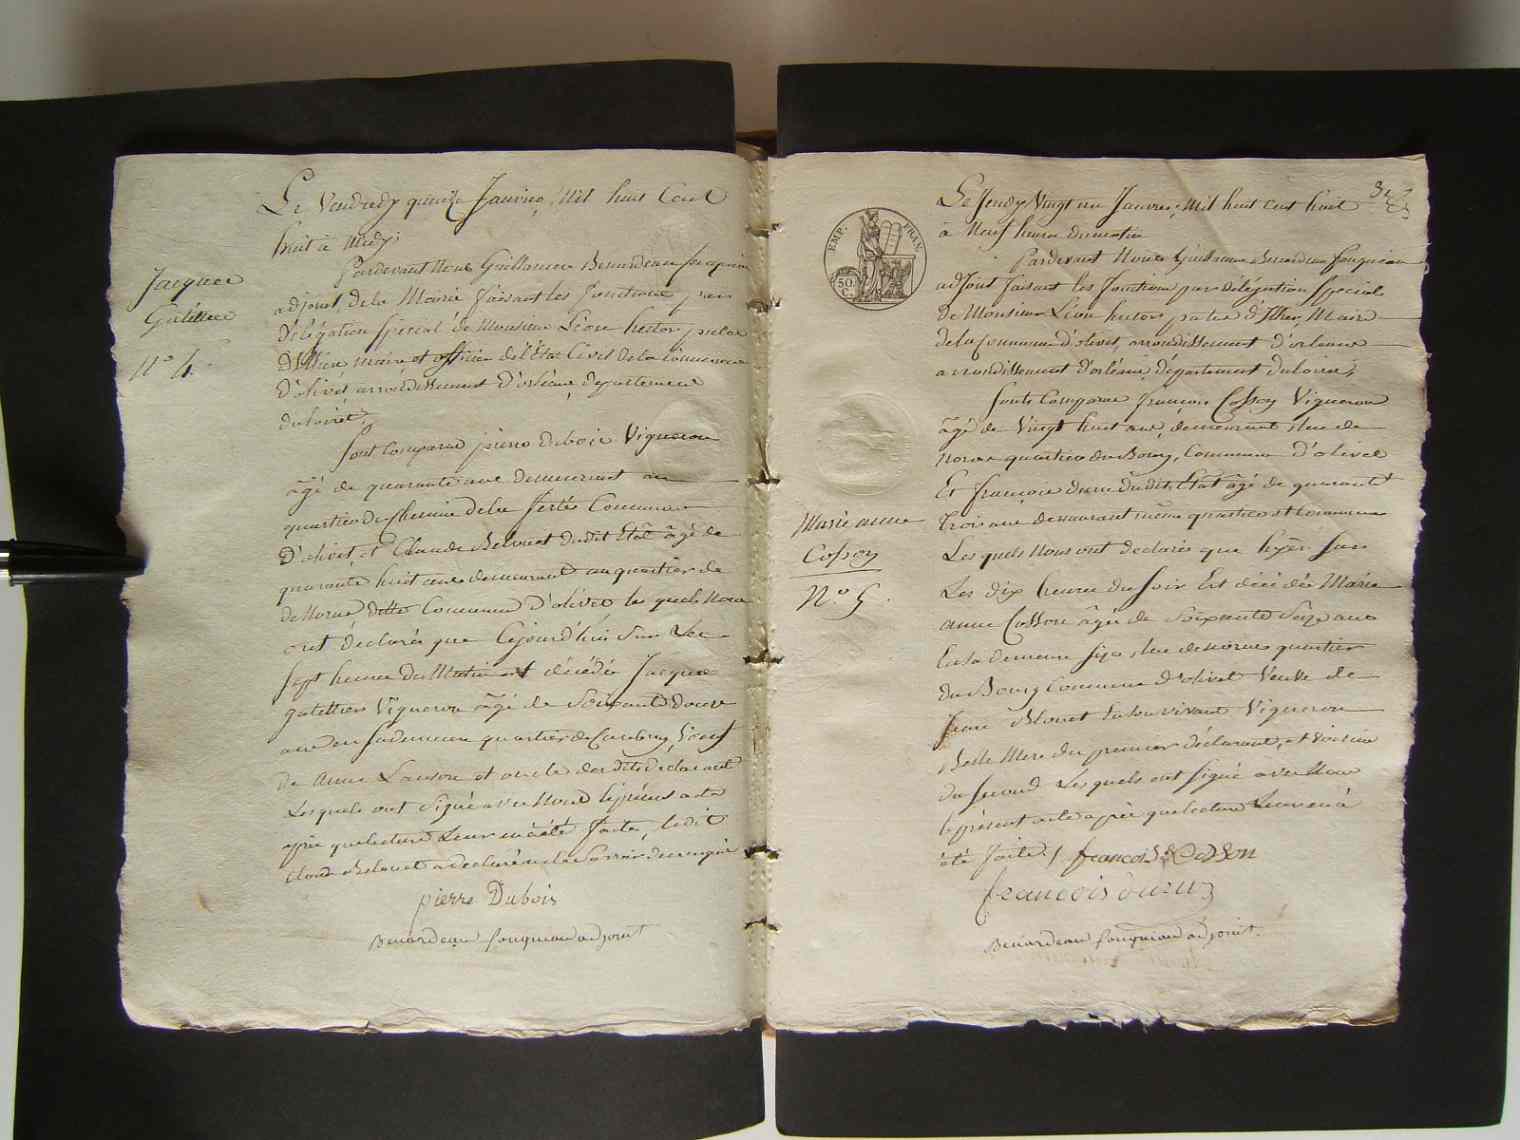 Le Vendredy quinze Janvier, Mil huit Cent
huit à midy;
Pardevant Nous Guillaume Benardeau
adjoint de la Mairie faisant les fonctions par
délégation spécial de Monsieur Léon hector patas
D'Illiers maire et officier de l'état Civil de la Commune
D'olivet arrondissement d'orléans departement
du loiret,
Jacques
Galillier
N° 4.
Sont Comparu pierre dubois Vigneron
âgé de quarante ans demeurant au
quartier du Chemin de la ferté Commune
D'olivet, et Claude Belouet dudit Etat âgé de
quarante huit ans demeurant au quartier de
de Norue ditte Commune D'olivet les quels Nous
ont déclarés que Cejourd'hui Sur les
Sept heures du Matin est décédé Jacques
Vigneron âgé de Soixante Douze
ans en sa demeure quartier de Couberny, Veuf
de Anne Lanson et oncle des dits déclarant
Lesquels ont Signé avec Nous le présent acte
après que lecture Leur en a été faite, ledit
Claude Belouet a declaré ne le Savoir de ce enquis
pierre Dubois
Benardeau fouqueau adjoint
EMP. FRAN.
50.
C.
Le Jeudy Vingt un Janvier, Mil huit cent huit
à Neuf heures du matin
Pardevant Nous Guillaume Benardeau fouqueau
adjoint faisant les fonctions par délégation special
de Monsieur Léon hector patas d'Illiers, Maire
de la Commune d'olivet, arrondissement d'orleans
arrondissement d'orléans, département du loiret,
Sont Comparu françois Cosson Vigneron
âgé de Vingt huit ans, demeurant rue de
Norue quartier du Bourg, Commune d'olivet
Et françois dudit Etat âgé de quarante
trois ans demeurant même quartier et Commune
Les quels Nous ont declarés que hyer Sur
Les dix heures du Soir Est décédée Marie
anne Cosson âgée de Soixante Seize ans
En sa demeure sise rue de Norue quartier
du Bourg Commune d'olivet Veuve de
Jean Blouet En Son vivant Vigneron
Belle Mere du premier déclarant, et Voisine
du Second Lesquels ont signé avec Nous
le présent acte après que lecture Leur en a
été faite./. francois Cosson
Marie anne
Cosson
N° 5.
francois
Benardeau fouqueau adjoint.